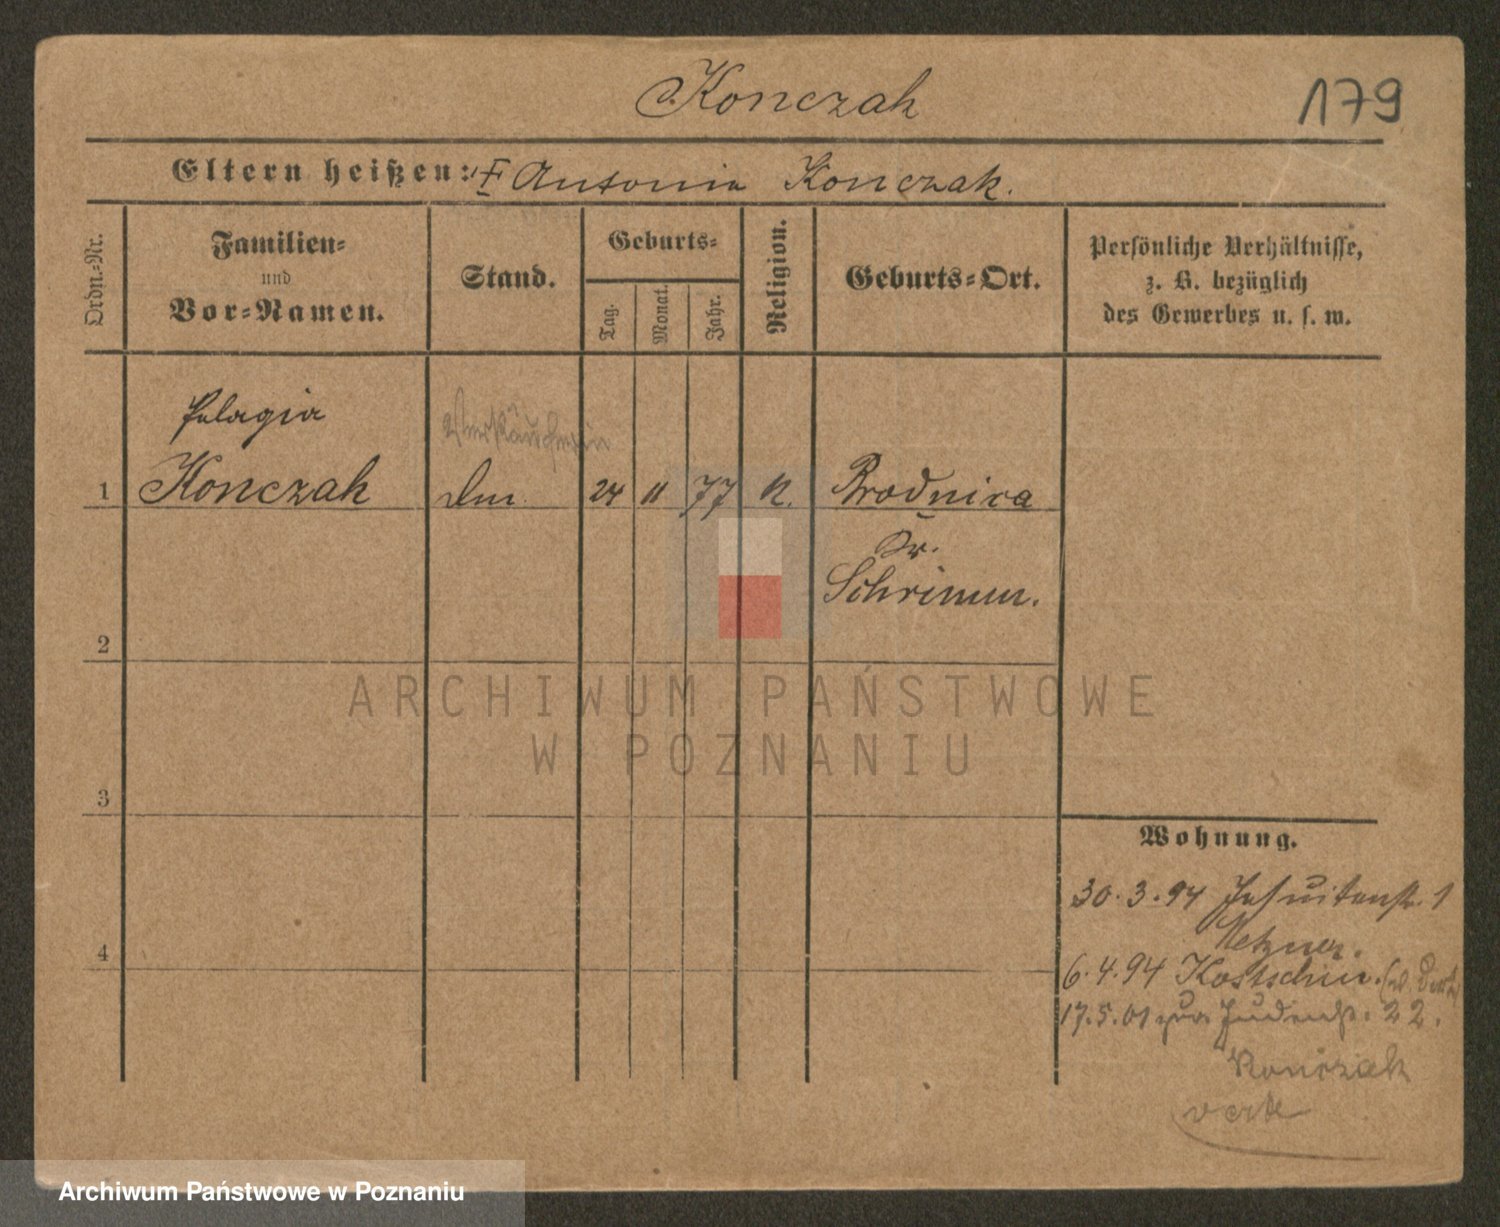 Konczak
179
Eltern heißen: Antonie Konczak.
Ordn.-Nr.
Familien- und Vor-Namen.
Stand.
Geburts-
Tag.
Monat.
Jahr.
Religion.
Geburts-Ort.
Persönliche Verhältnisse,
z. B. bezüglich
des Gewerbes u. s. w.
Pelagia
Verkäuferin
1 Konczak 24 11 77 K. Brodnica
Kr.
Schrimm.
2
3
4
Wohnung.
30.3.94 Jesuitenstr. 1
Metzner.
6.4.94 Kostschin.
17.5.01 Judenstr. 22.
Konczak
verte
ARCHIWUM PAŃSTWOWE
W POZNANIU
Archiwum Państwowe w Poznaniu